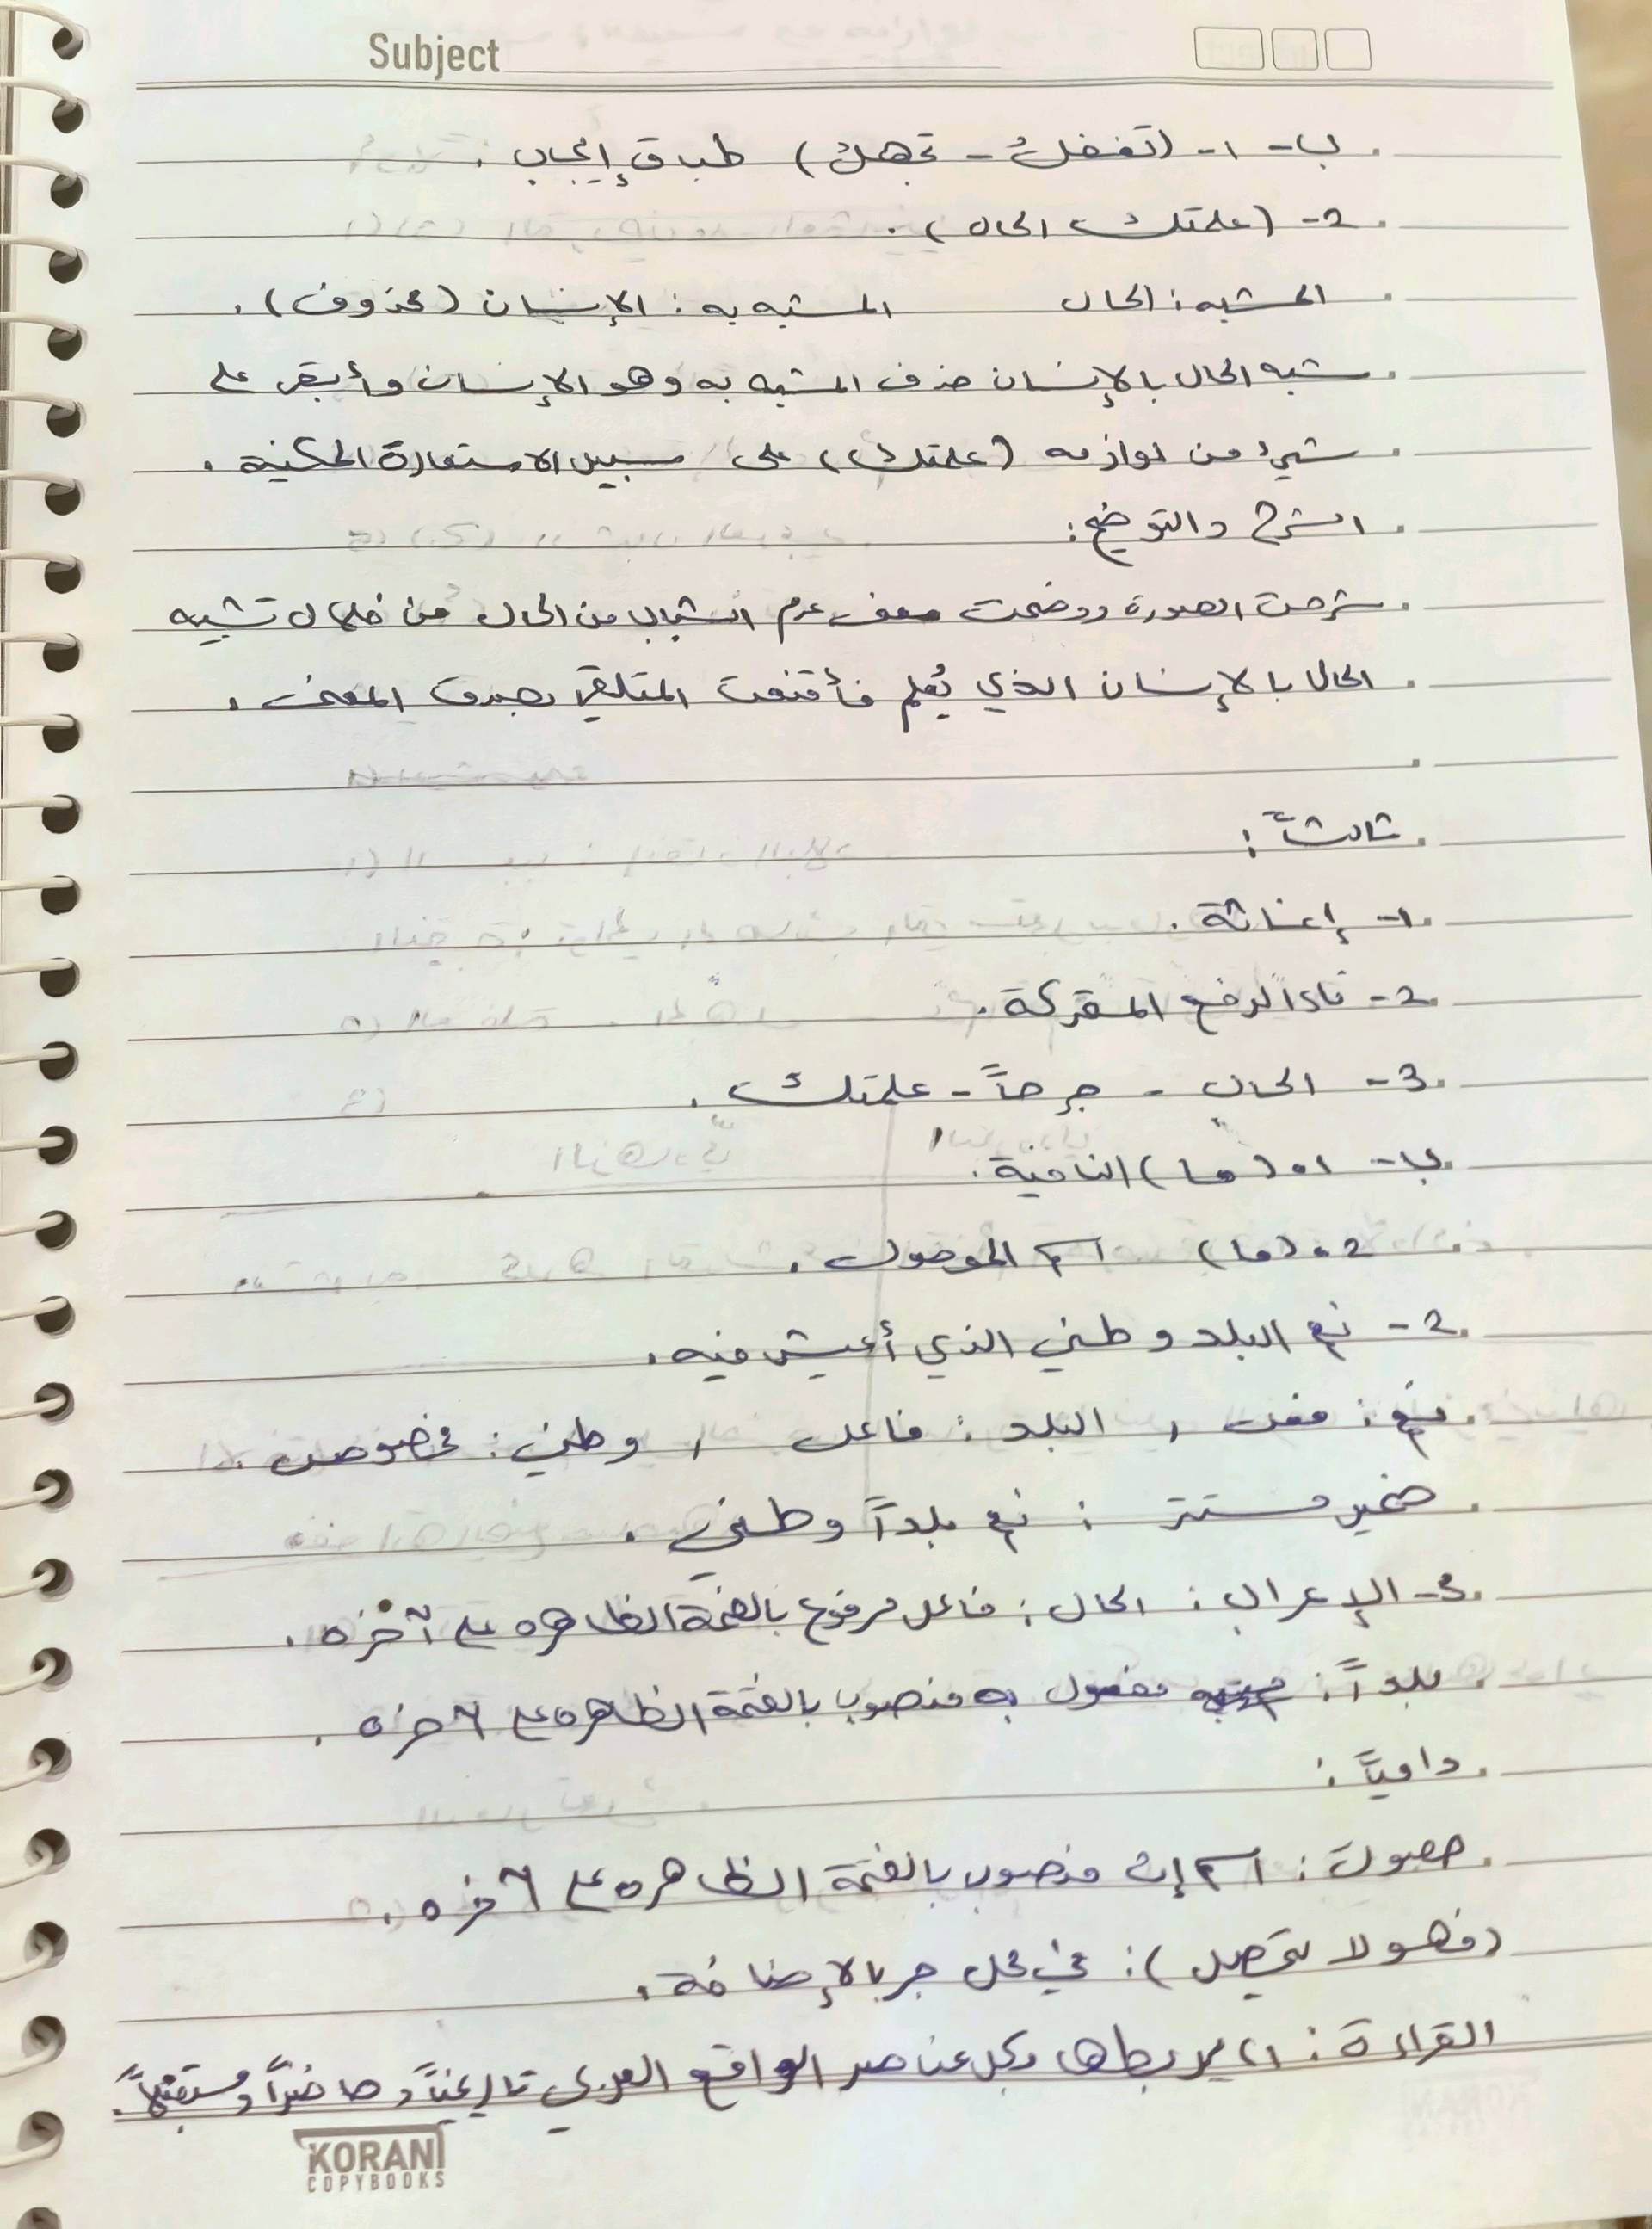 Subject
ب- ١- (تغفلُ - تجهلُ) طباق إيجاب .
2- (علمتك الحال) .
المشبه : الحال المشبه به : الإنسان (محذوف) .
شبه الحال بالإنسان حذف المشبه به وهو الإنسان وأبقى على
شيءٍ من لوازمه (علمتك) على سبيل الاستعارة المكنية .
الشرح والتوضيح :
شرحت الصورة ووضحت الشباب من الحال من خلال تشبيه
الحال بالإنسان الذي يُعلم فأقنعت المتلقي بصدق المعنى .
ثالثاً :
١- إغاثة .
2- المتحركة .
3- الحال - جرحاً - علمتك .
ب- ١. (ما) النافية .
2. (ما) اسم الموصول .
2- نعم البلد وطني الذي أعيش فيه .
نعم : فعل , البلد : فاعل , وطني : مخصوص
ضمير مستتر : نعم بلداً وطني .
3- الإعراب : الحال : فاعل مرفوع بالضمة الظاهره على آخره .
بلداً : مفعول به منصوب بالفتحة الظاهره على آخره .
: اسم إن منصوب بالفتحة الظاهره على آخره .
(فهو لا يتحصل) : في محل جر بالإضافة .
القراءة : ١) يربطها بكل عناصر الواقع العربي تاريخياً وحاضراً ومستقبلاً .
KORANI
COPYBOOKS